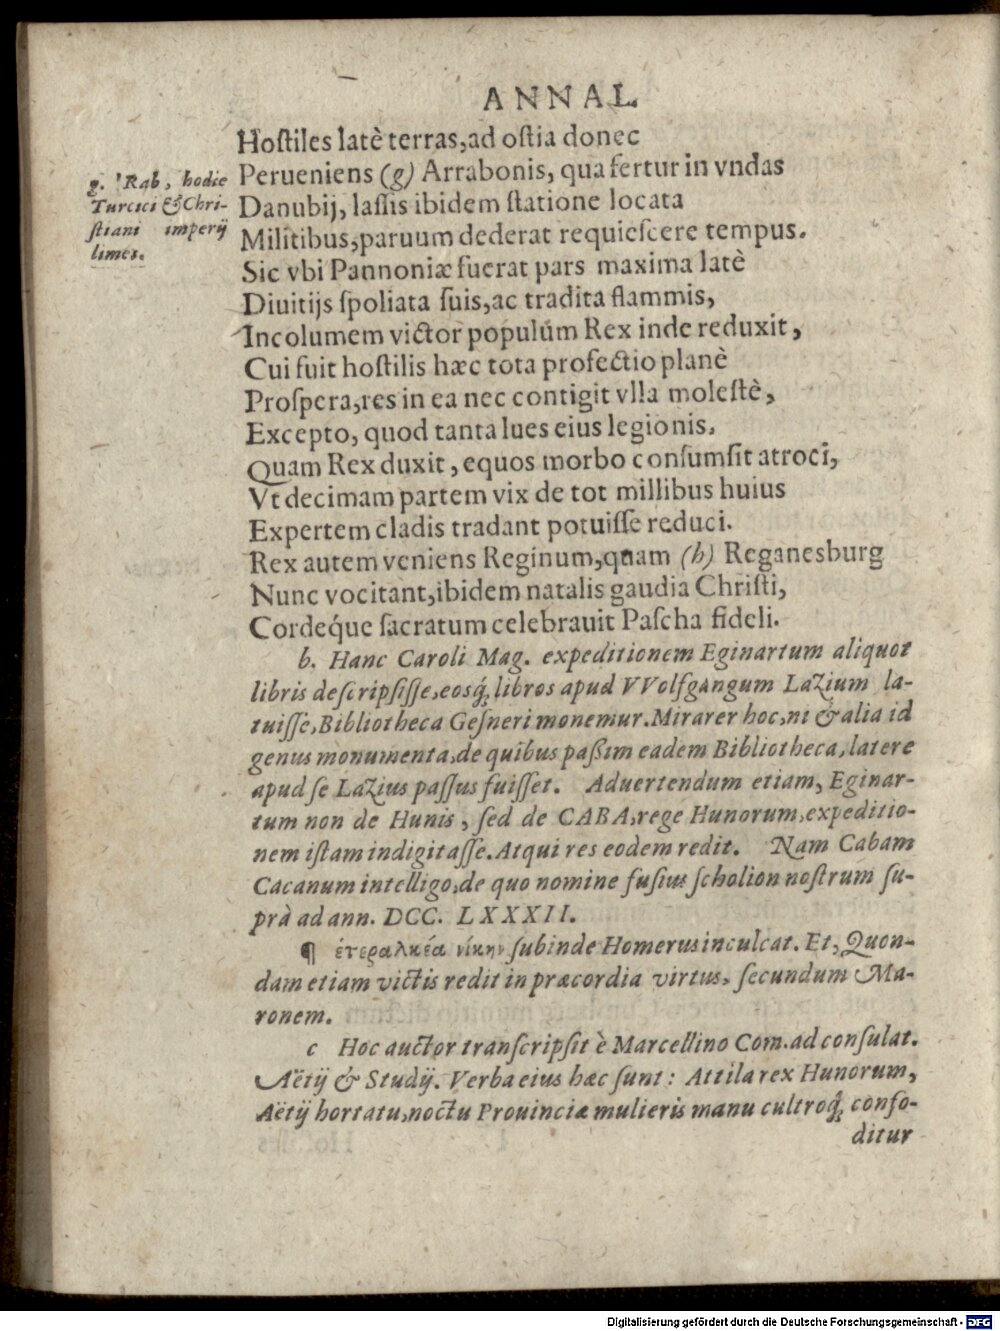 ANNAL.
Hoſtiles latè terras, ad oſtia donec
Perueniens (g) Arrabonis, qua fertur in vndas
Danubij, laſſis ibidem ſtatione locata
Militibus, paruum dederat requieſcere tempus.
Sic vbi Pannoniæ fuerat pars maxima latè
Diuitijs ſpoliata ſuis, ac tradita flammis,
Incolumem victor populúm Rex inde reduxit,
Cui fuit hoſtilis hæc tota profectio planè
Proſpera, res in ea nec contigit vlla moleſtè,
Excepto, quod tanta lues eius legionis,
Quam Rex duxit, equos morbo conſumſit atroci,
Vt decimam partem vix de tot millibus huius
Expertem cladis tradant potuiſſe reduci.
Rex autem veniens Reginum, quam (h) Reganesburg
Nunc vocitant, ibidem natalis gaudia Chriſti,
Cordeq́ue ſacratum celebrauit Paſcha fideli.
g. Rab, hodie
Turcici & Chri-
ſtiani imperij
limes.
b. Hanc Caroli Mag. expeditionem Eginartum aliquot
libris deſcripſiſſe, eosq́, libros apud VVolfgangum Lazium la-
tuiſſe, Bibliotheca Geſneri monemur. Mirarer hoc, ni & alia id
genus monumenta, de quibus paßim eadem Bibliotheca, latere
apud ſe Lazius paſſus fuiſſet. Aduertendum etiam, Eginar-
tum non de Hunis, ſed de CABA, rege Hunorum, expeditio-
nem iſtam indigitaſſe. Atqui res eodem redit. Nam Cabam
Cacanum intelligo, de quo nomine fuſius ſcholion noſtrum ſu-
prà ad ann. DCC. LXXXII.
¶ ἑτεραλκέα νίκην ſubinde Homerus inculcat. Et, Quon-
dam etiam victis redit in præcordia virtus, ſecundum Ma-
ronem.
c Hoc auctor tranſcripſit è Marcellino Com. ad conſulat.
Aëtij & Studij. Verba eius hæc ſunt: Attila rex Hunorum,
Aëtij hortatu, noctu Prouinciæ mulieris manu cultroq́, confo-
ditur
Digitalisierung gefördert durch die Deutsche Forschungsgemeinschaft - DFG